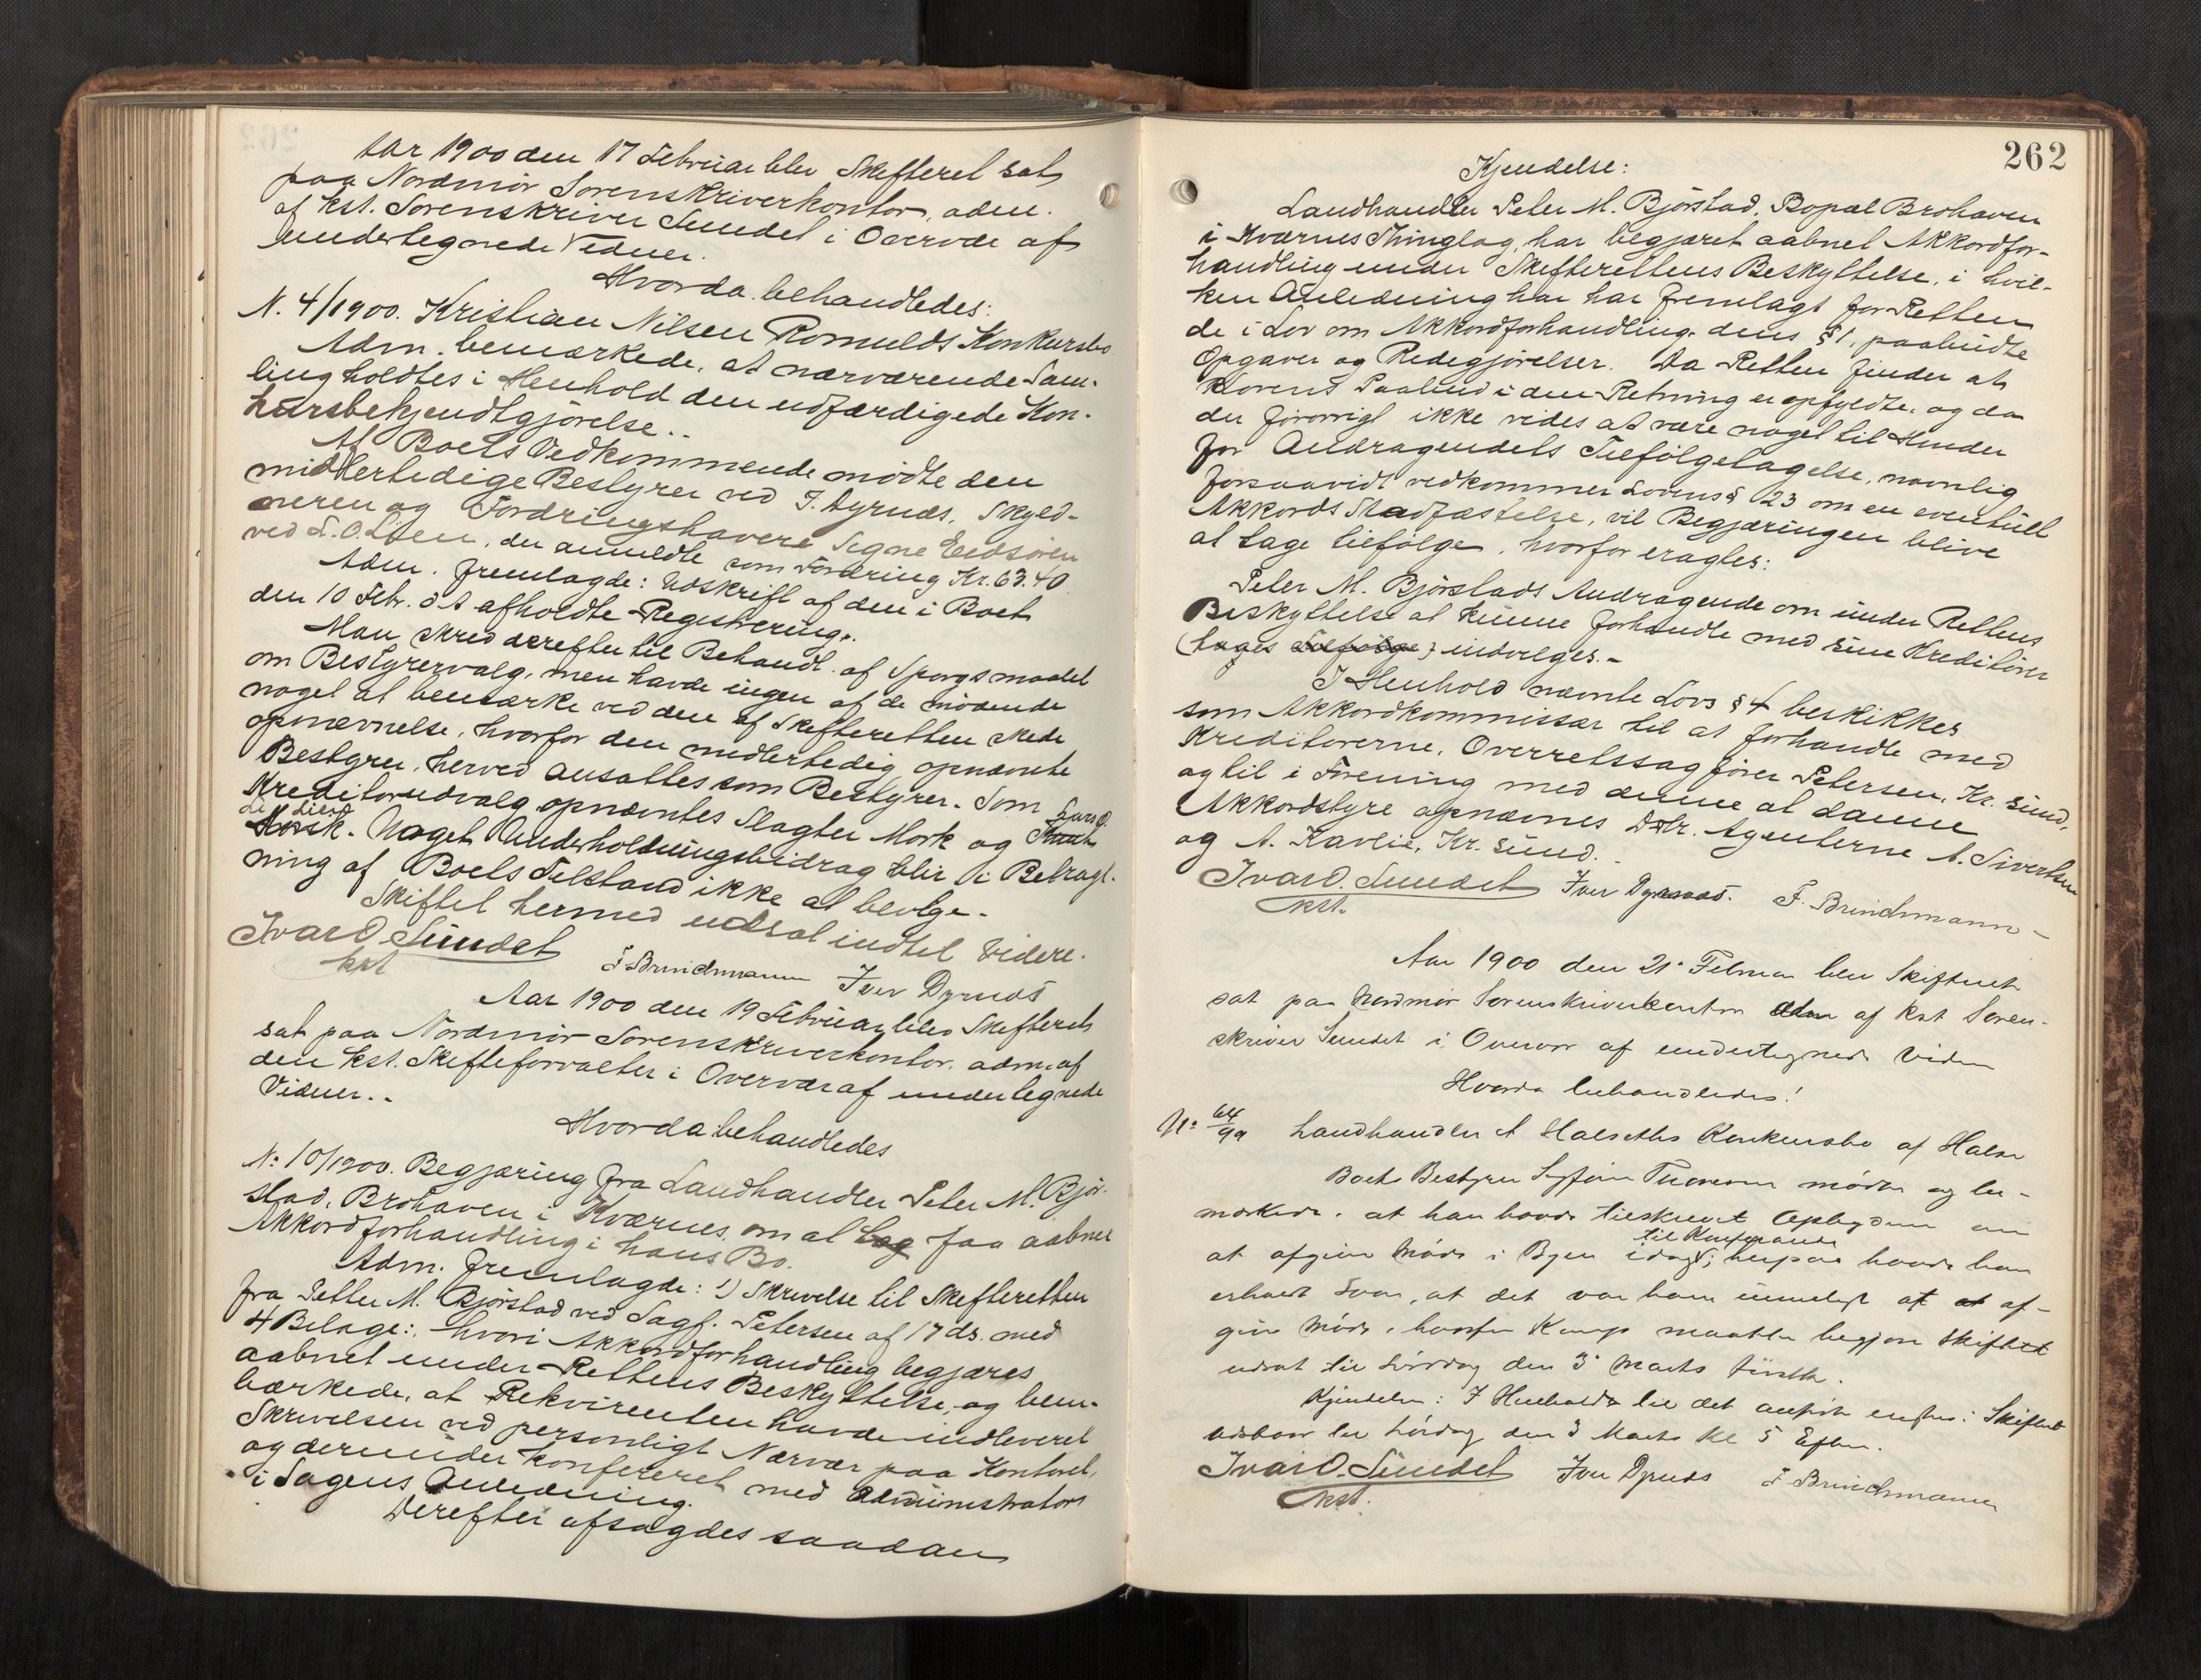 Aar 1900 den 17 Februar blev Skifteret sat
paa Nordmør Sorenskriverkontor, adm.
af kst. Sorenskriver Sundet i Overvær af
undertegnede Vidner.
Hvorda behandledes:
N. 4/1900. Kristian Nilsen Romulds Konkursbo
Adm. bemærkede, at nærværende Sam-
ling holdtes i Henhold den udfærdigede Kon-
kursbekjendtgjørelse..
Af Boets Vedkommende mødte den
midlertedige Bestyrer ved I. Dyrnds, Skyld-
neren og Fordringshavere Signe
ved L. O. Lien, der anmeldte som Fordring Kr. 63.40
Adm. fremlagde: Udskrift af den i Boet
den 10 Febr. d A afholdte Registrering.
Man skred derefter til Behandl. af Spørgsmaalet
om Bestyrervalg, men havde ingen af de mødende
noget at bemærke ved den af Skifteretten skede
opnævnelse, hvorfor den midlertedig opnævnte
Bestyrer, herved ansattes som Bestyrer. Som
Kreditorudvalg opnævntes Slagter Mork og Lars O.
Lien. Noget Underholdningsbidrag blir i Betragt-
ning af Boets Tilstand ikke at bevilge.
Skiftet hermed udsat indtil Videre.
Ivar O. Sundet
kst
F. Brinchmann Iver Dyrnds
Aar 1900 den 19 Februar blev Skifteret
sat paa Nordmør Sorenskriverkontor, adm. af
den kst. Skifteforvalter i Overvær af undertegnede
Vidner..
Hvorda behandledes
N: 10/1900. Begjæring fra Landhandler Peter M. Bjør-
stad, Brohaven i Kværnes, om at faa aabnet
Akkordforhandling i hans Bo.
Adm. fremlagde: 1) Skrivelse til Skifteretten
fra Petter M. Bjørstad ved Sagf. Petersen af 17 ds. med
4 Bilage:, hvori Akkordforhandling begjæres
aabnet under Rettens Beskyttelse, og bem-
bærkede, at Rekvirenten havde indleveret
Skrivelsen ved personligt Nærvær paa Kontoret,
og derunder konfereret med Administrator
i Sagens Anledning.
Derefter afsagdes saadan
262
Kjendelse:
Landhandler Peter M. Bjørstad, Bopæl Brohaven
i Kværnes Thinglag, har begjæret aabnet Akkordfor-
handling under Skifterettens Beskyttelse, i hvil-
ken Anledning har har fremlagt for Retten
de i Lov om Akkordforhandling dens § 1, paabudte
Opgaver og Redegjørelser. Da Retten finder at
Lovens Paabud i den Retning er opfyldte, og da
der forøvrigt ikke vides at være noget til Hinder
for Andragendets Tilfølgetagelse, navnlig
forsaavidt vedkommer Lovens § 23 om en eventuel
Akkords Stadfæstelse, vil Begjæringen blive
at tage tilfølge, hvorfor eragtes:
Peter M. Bjørstads Andragende om under Rettens
Beskyttelse at kunne forhandle med sine Kreditorer
(tages tilfølge) indvilges.-
I Henhold nævnte Lovs § 4 beskikkes
som Akkordkommissær til at forhandle med
Kreditorerne, Overretssagfører Petersen, Kr. Sund,
og til i Forening med denne at danne
Akkordstyre opnævnes Dhr. Agenterne A. Sivertsen
og A. Kavlie, Kr. Sund.
Ivar O. Sundet Iver Dyrnds. F. Brinchmann
kst.
Aar 1900 den 21 Februar blev Skifteret
sat paa Nordmør Sorenskriverkontor adm af kst Soren-
skriver Sundet i Overvær af undertegnede Vidner
Hvorda behandledes!
N: 64/99 Landhandler A Halseths Konkursbo af Halse
Boets Bestyrer mødte og be-
mærkede, at han havde tilskrevet om
at afgive Møde i Byen idag til Konferance; herpaa havde han
erholdt Svar, at det var ham umuligt at af-
give Møde, hvorfor Komp maatte begjære Skiftet
udsat til Lørdag den 3 Marts
Kjendelse: I Henhold til det anførte Skiftet
udsboes til Lørdag den 3 Marts kl 5 Efterm.
Ivar O. Sundet Iver Dyrnds F Brinchmann
kst.